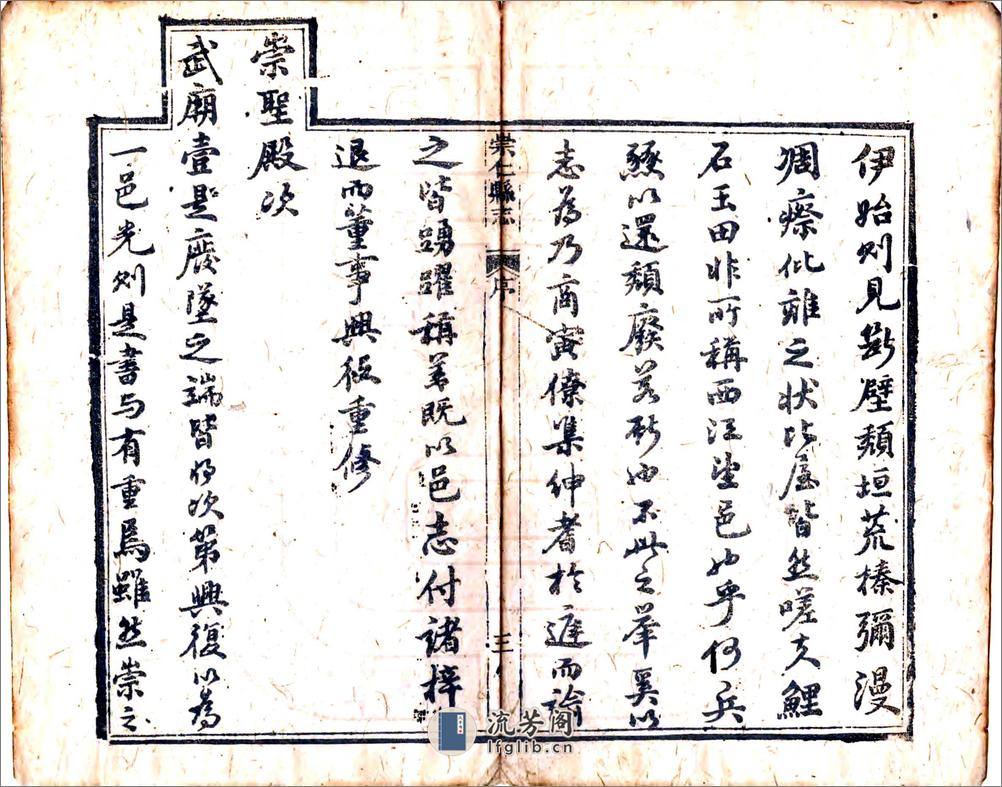 伊始則見斷壁頹垣荒榛彌漫
凋瘵仳離之狀比屋皆然嗟夫鯉
石玉田非所稱西江望邑也乎何兵
燹以還頹廢若斯也不此之舉奚以
志為乃商寅僚集紳耆於庭而諭
崇仁縣志 序 三
之皆踴躍稱善既以邑志付諸梓
退而董事興役重修
崇聖殿次
武廟壹是廢墜之端皆得次第興復以為
一邑光則是書与有重焉雖然崇之
流芳阁
lfglib.cn